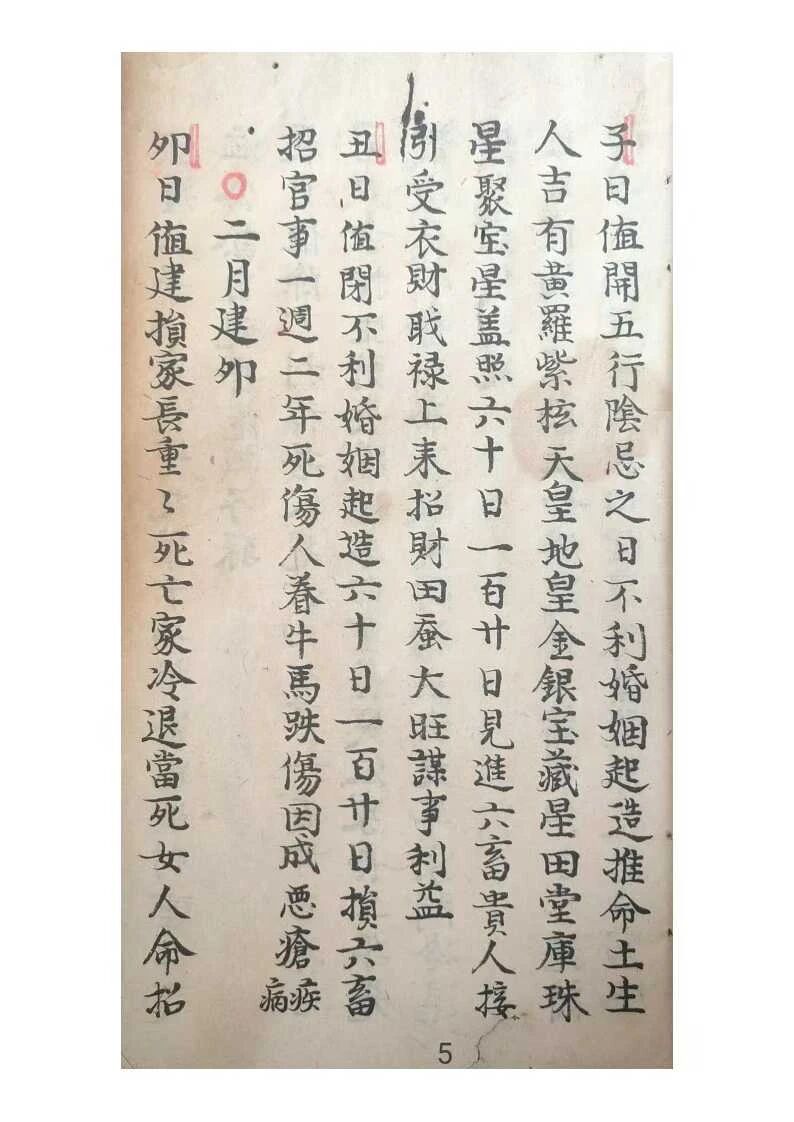 子日值開五行陰忌之日不利婚姻起造推命土生
人吉有黄羅紫桉天皇地皇金銀宝藏星田堂庫珠
星聚宝星盖照六十日一百廿日見進六畜貴人接
引受衣財职禄上来招財田蚕大旺謀事利益
丑日值閉不利婚姻起造六十日一百廿日損六畜
招官事一週二年死傷人眷牛馬跌傷因成恶瘡疾病
二月建夘
夘日值建損家長重〻死亡家冷退當死女人命招
5